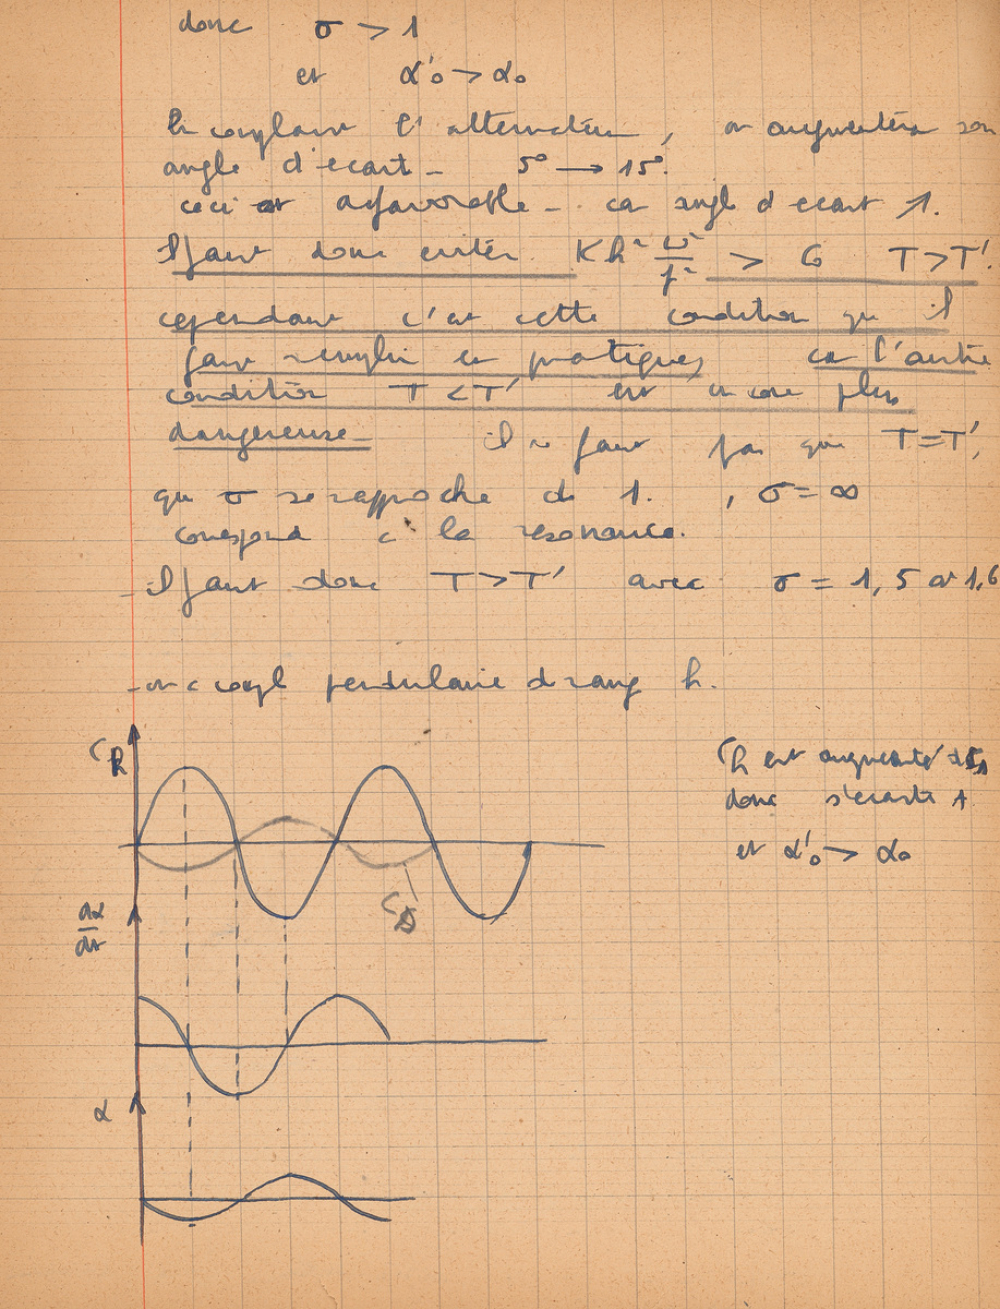 donc σ > 1
et α'₀ > α₀
En couplant l'alternateur, on augmentera son
angle d'ecart - 5° → 15°.
ceci est defavorable - car angle d'ecart ↗.
Il faut donc eviter Kh² ω²/p² > G T > T'.
cependant c'est cette condition qu'il
faut remplir en pratique, car l'autre
condition T < T' est encore plus
dangereuse - il ne faut pas que T = T',
que σ se rapproche de 1. , σ = ∞
correspond à la resonance.
- il faut donc T > T' avec σ = 1,5 ou 1,6
- on a coupl pendulaire de rang h.
Ch
Ch est augmenté de Cs
donc s'ecarte
et α'₀ > α₀
Cs
dα/dt
α